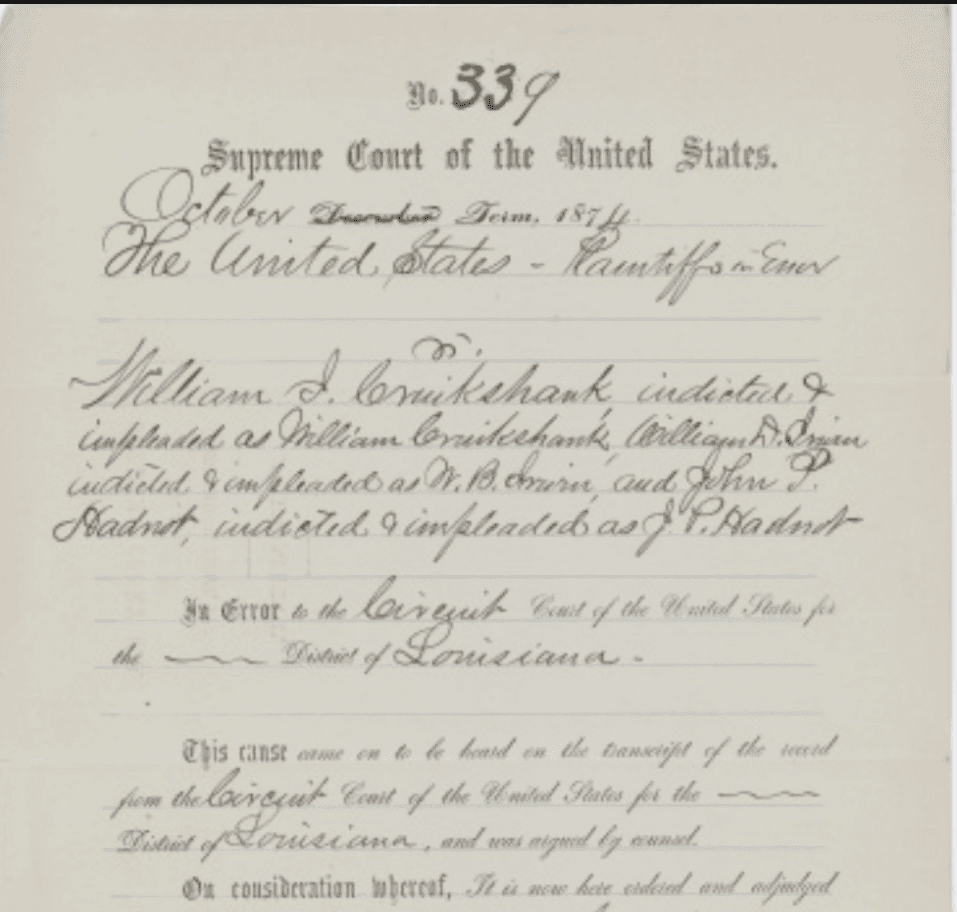 No. 339
Supreme Court of the United States.
October December Term, 1874.
The United States - Plaintiffs in Error
vs.
William J. Cruikshank, indicted &
impleaded as William Cruikshank, William D. Irwin
indicted & impleaded as W. B. Irwin, and John P.
Hadnot, indicted & impleaded as J. P. Hadnot
In Error to the Circuit Court of the United States for
the District of Louisiana -
This cause came on to be heard on the transcript of the record
from the Circuit Court of the United States for the
District of Louisiana, and was argued by counsel.
On consideration whereof, It is now here ordered and adjudged